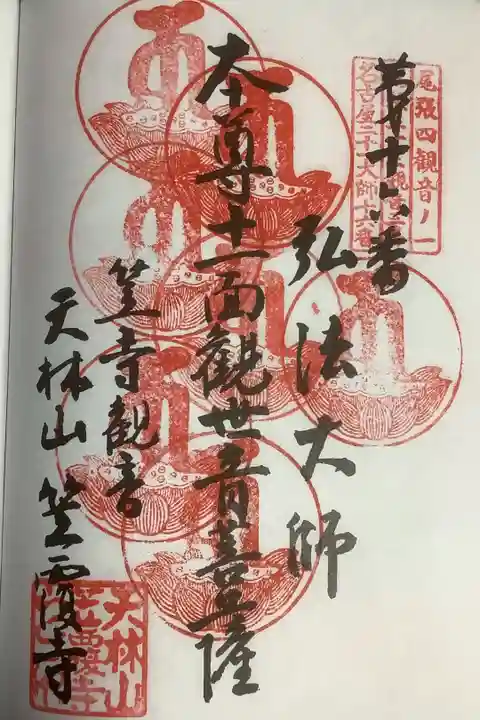 尾張四観音ノ一
名古屋二十一大師十六番
第十六番
弘法大師
本尊十一面観世音菩薩
笠寺観音
天林山笠覆寺
天林山
笠覆寺